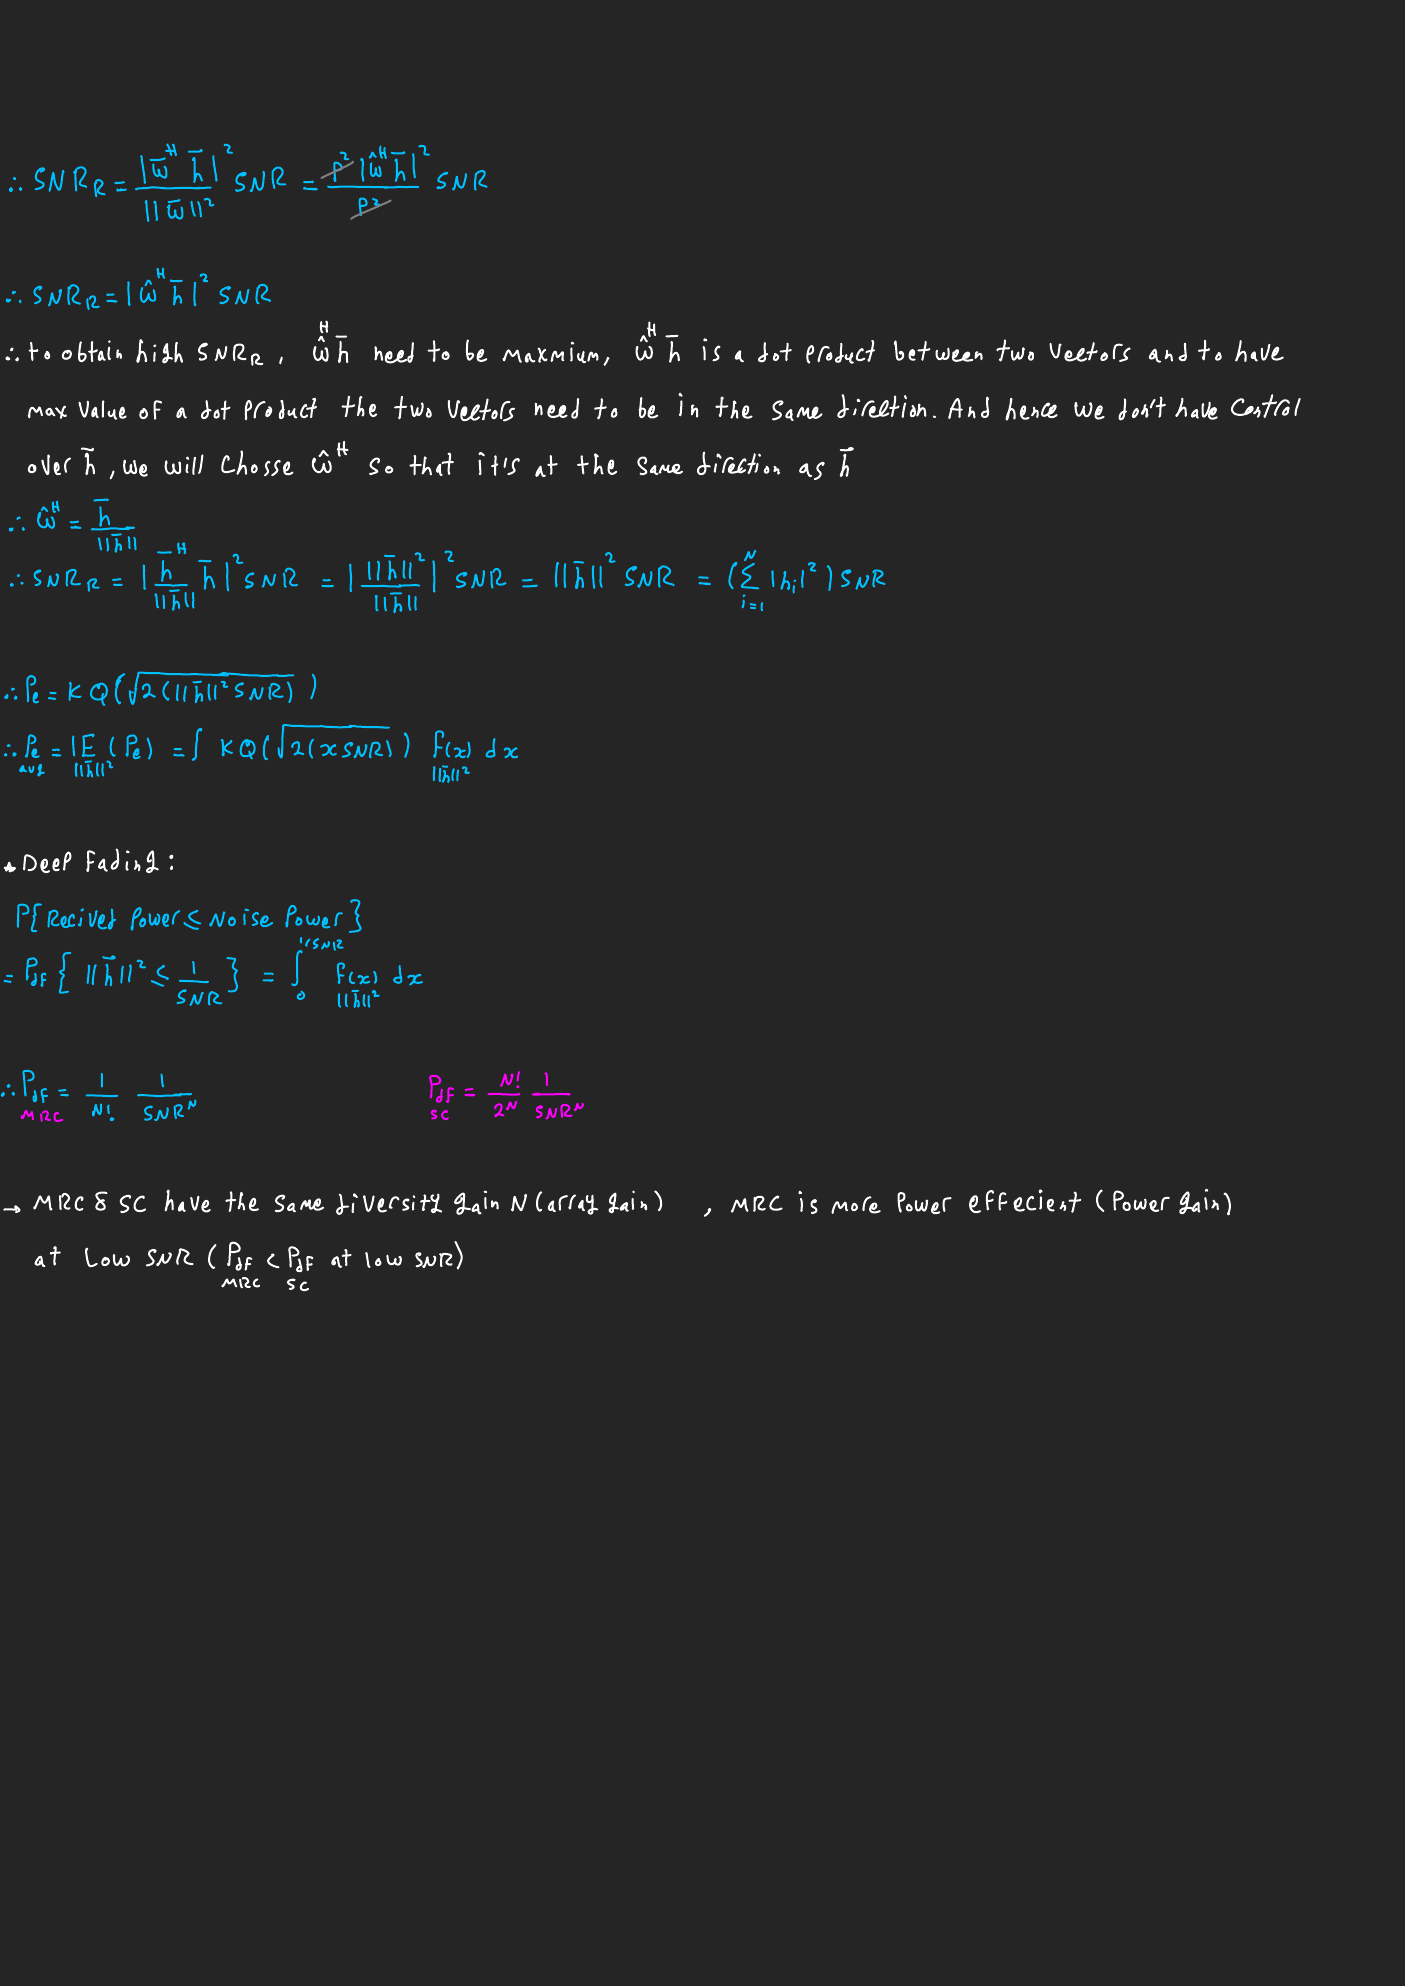 ∴ SNR_R = |w̄^H h̄|² / ||w̄||² SNR = P² |ŵ^H h̄|² / P² SNR
∴ SNR_R = |ŵ^H h̄|² SNR
∴ to obtain high SNR_R, ŵ^H h̄ need to be maxmium, ŵ^H h̄ is a dot product between two vectors and to have
max value of a dot product the two vectors need to be in the same direction. And hence we don't have control
over h̄, we will chosse ŵ^H so that it's at the same direction as h̄
∴ ŵ^H = h̄ / ||h̄||
∴ SNR_R = | h̄^H / ||h̄|| h̄ |² SNR = | ||h̄||² / ||h̄|| |² SNR = ||h̄||² SNR = (Σ_{i=1}^{N} |h_i|²) SNR
∴ P_e = K Q(√(2(||h̄||² SNR)))
∴ P_e avg = 𝔼_{||h̄||²} (P_e) = ∫ K Q(√(2(x SNR))) f(x)_{||h̄||²} dx
• Deep Fading:
P{Recived Power ≤ Noise Power}
= P_df { ||h̄||² ≤ 1/SNR } = ∫_0^{1/SNR} f(x)_{||h̄||²} dx
∴ P_df MRC = 1/N! 1/SNR^N P_df SC = N!/2^N 1/SNR^N
→ MRC & SC have the same diversity gain N (array gain) , MRC is more Power effecient (Power gain)
at Low SNR (P_df MRC < P_df SC at low SNR)